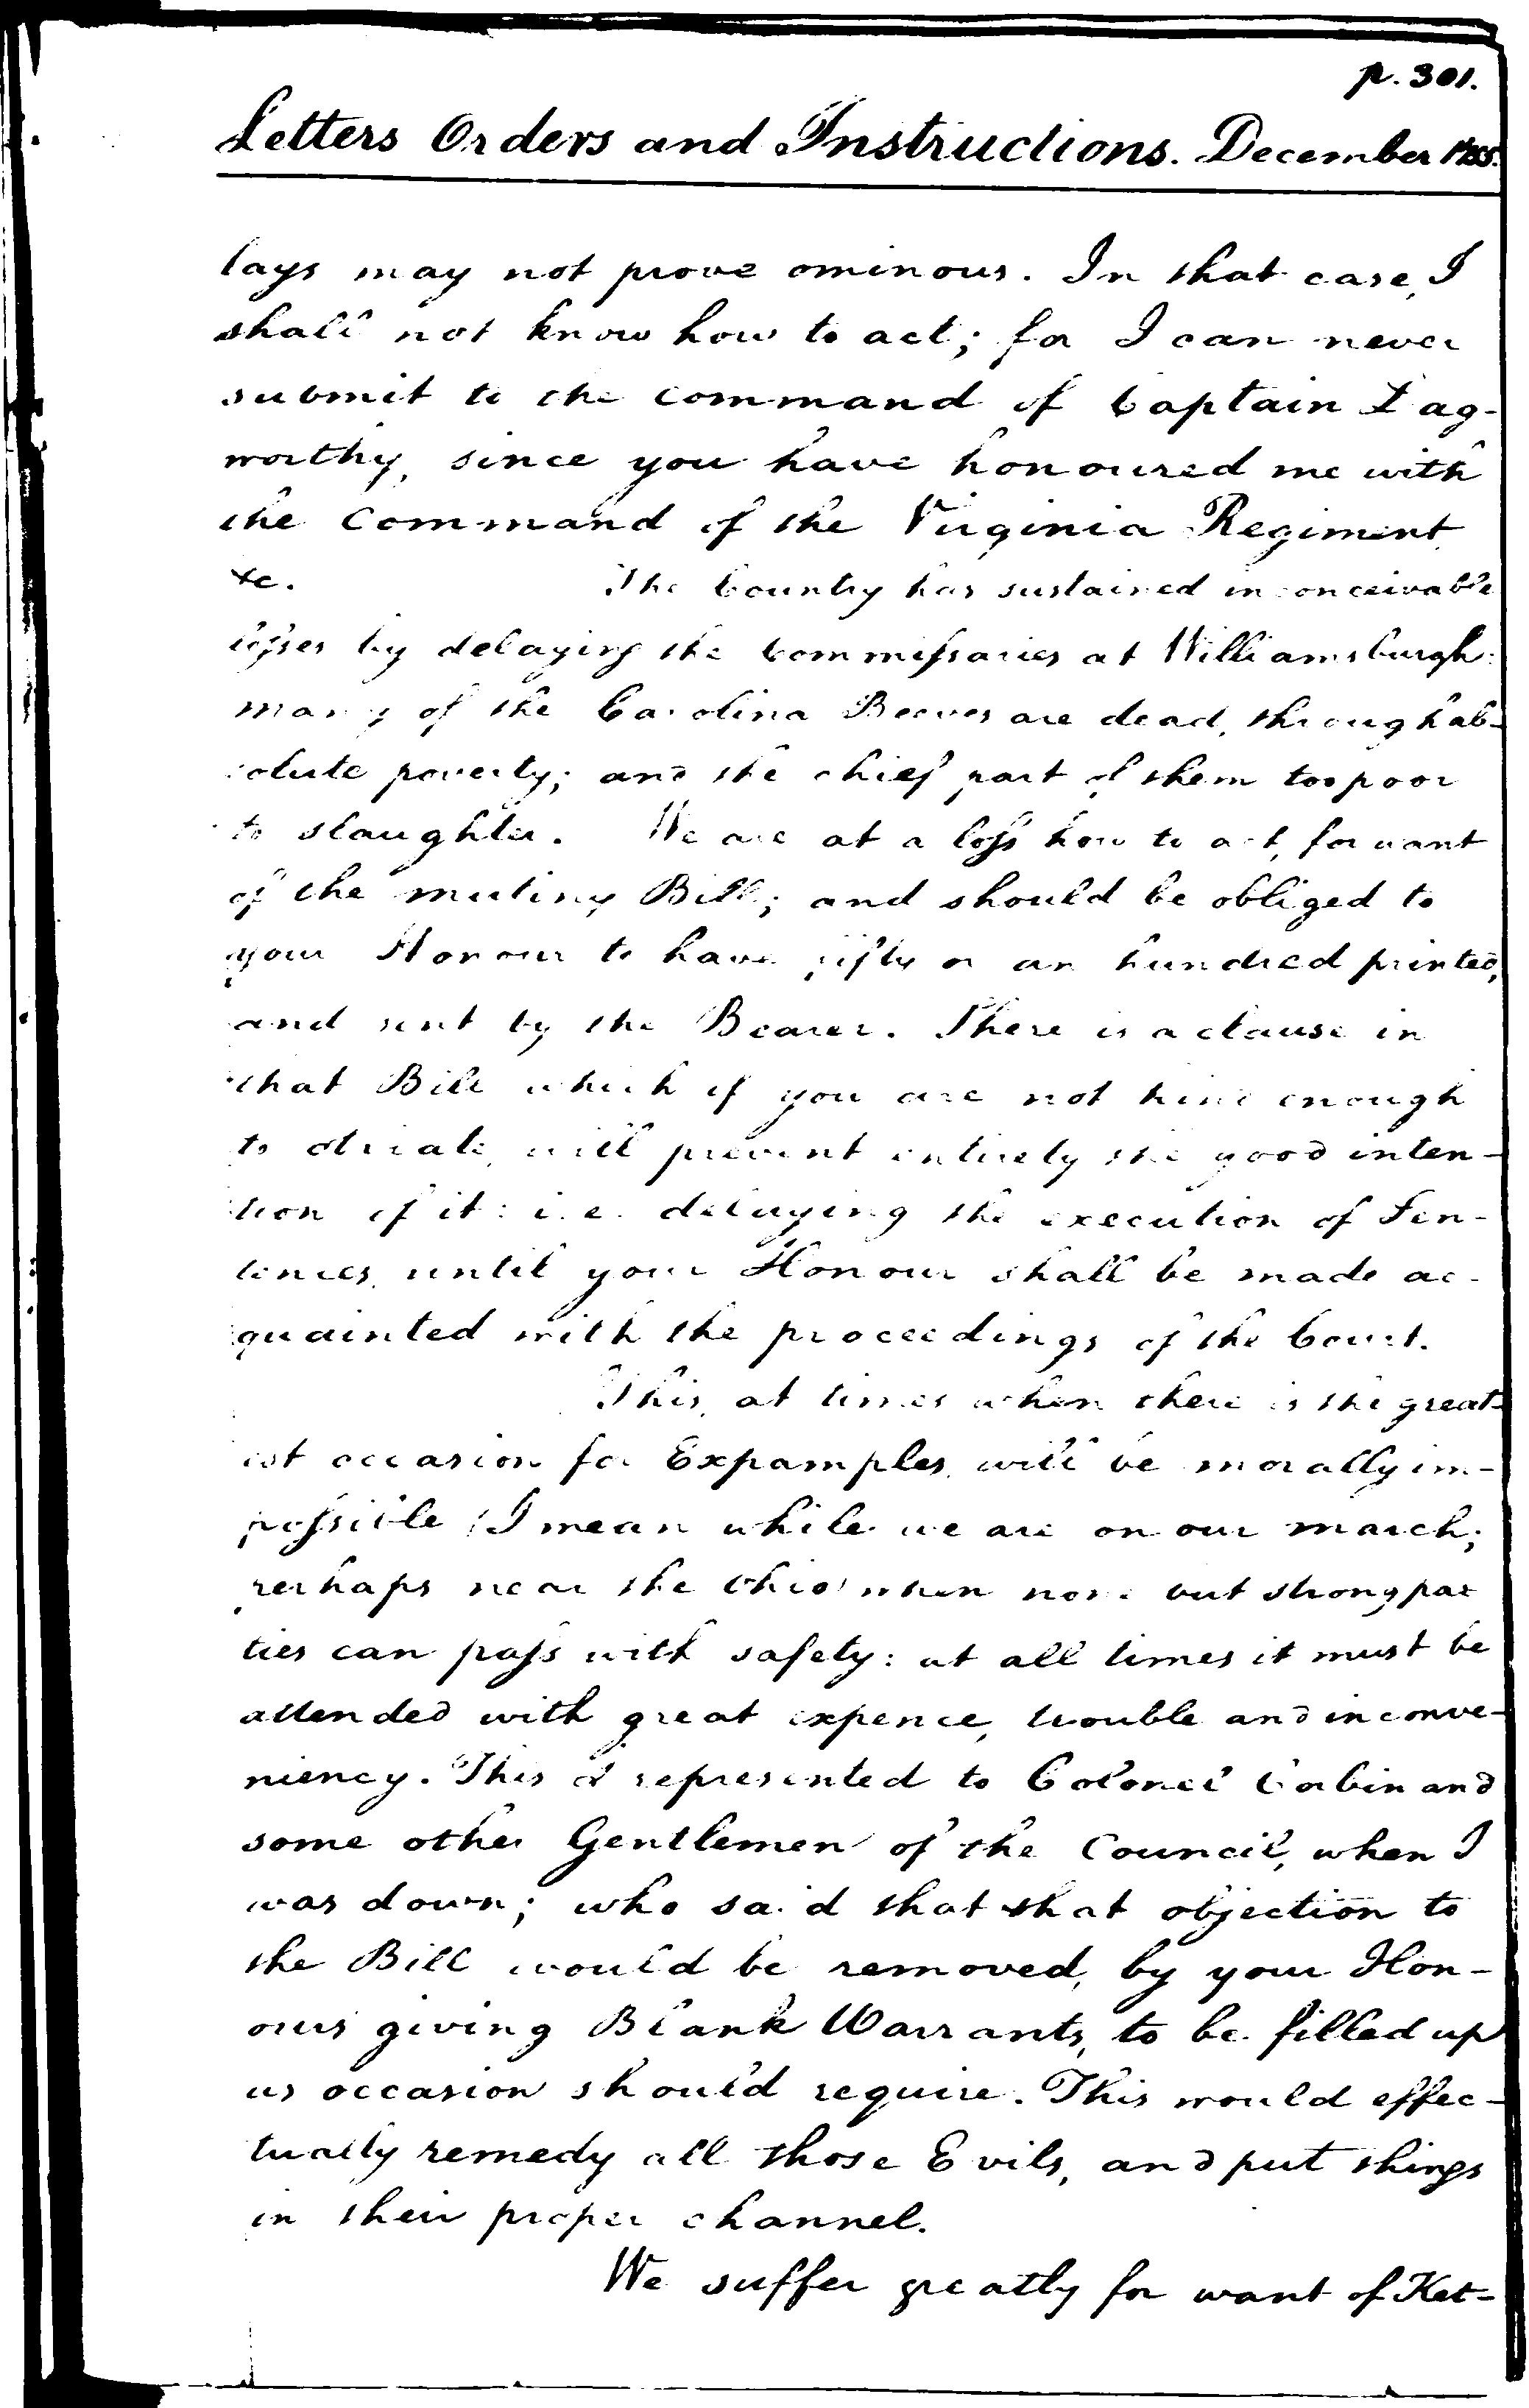 p. 301.
Letters Orders and Instructions. December 1755.
lays may not prove ominous. In that case, I
shall not know how to act; for I can never
submit to the command of Captain Dag-
worthy, since you have honoured me with
the Command of the Virginia Regiment
&c. The Country has sustained inconceivable
losses by delaying the Commissaries at Williamsburgh:
many of the Carolina Beeves are dead, through ab-
solute poverty; and the chief part of them too poor
to slaughter. We are at a loss how to act, for want
of the mutiny Bill; and should be obliged to
your Honour to have fifty or an hundred printed,
and sent by the Bearer. There is a clause in
that Bill which if you are not kind enough
to obviate, will prevent entirely the good inten-
tion of it: i.e. delaying the execution of Sen-
tences, until your Honour shall be made ac-
quainted with the proceedings of the Court.
This, at times when there is the great-
est occasion for Expamples, will be morally im-
possible (I mean while we are on our march;
perhaps near the Ohio) when none but strong par
ties can pass with safety: at all times it must be
attended with great expence, trouble and inconve-
niency. This I represented to Colonel Corbin and
some other Gentlemen of the Council, when I
was down; who said that that objection to
the Bill would be removed, by your Hon-
ours giving Blank Warrants, to be filled up
as occasion should require. This would effec-
tually remedy all those Evils, and put things
in their proper channel.
We suffer greatly for want of Ket-